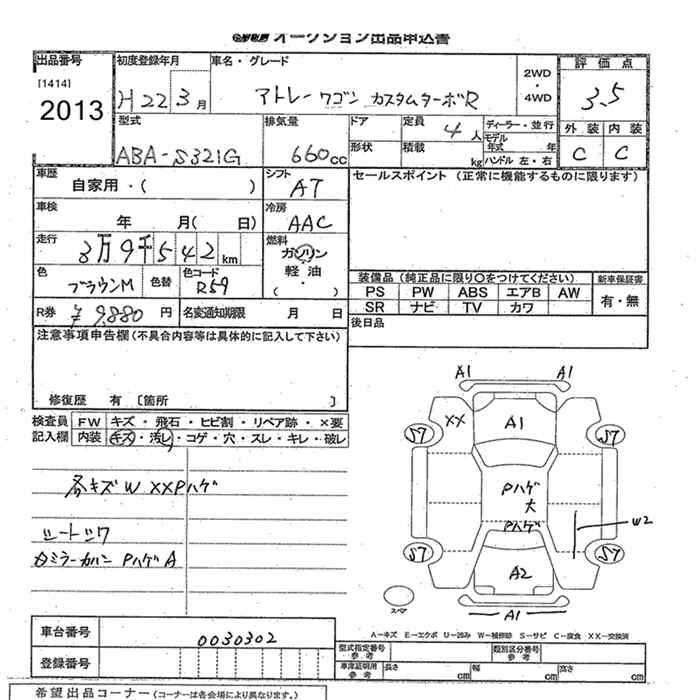 オークション出品申込書
出品番号 初度登録年月 車名・グレード 評価点
[1414] 2WD
2013 H22 3月 アトレーワゴン カスタムターボR ・ 3.5
4WD
型式 排気量 ドア 定員 4人 ディーラー・並行 外装 内装
モデル年式 年
ABA-S321G 660cc 形状 積載 kg ハンドル 左・右 C C
車歴 シフト セールスポイント (正常に機能するものに限ります)
自家用・( ) AT
車検 冷房
年 月( 日) AAC
走行 燃料
3万9千542km ガソリン
色 色替 色コード 軽油
ブラウンM R59 ・
( )
装備品 (純正品に限り○をつけてください) 新車保証書
PS PW ABS エアB AW 有・無
SR ナビ TV カワ
R券 ¥9,880円 名変通知期限 月 日
後日品
注意事項申告欄 (不具合内容等は具体的に記入して下さい)
修復歴 有 〔箇所 〕
検査員 FW キズ・飛石・ヒビ割・リペア跡・×要
記入欄 内装 キズ・汚レ・コゲ・穴・スレ・キレ・破レ
各キズW XXPハゲ
シートシワ
ドミラーカバー PハゲA
A1 A1
XX A1
S7 S7
Pハゲ
大
Pハゲ W2
S7 S7
A2
スペア A1
A－キズ E－エクボ U－凹み W－補修跡 S－サビ C－腐食 XX－交換済
車台番号 0030302
登録番号
型式指定番号 参考 類別区分番号 参考
車庫証明用 参考 長さ cm 幅 cm 高さ cm
希望出品コーナー (コーナーは各会場により異なります。)